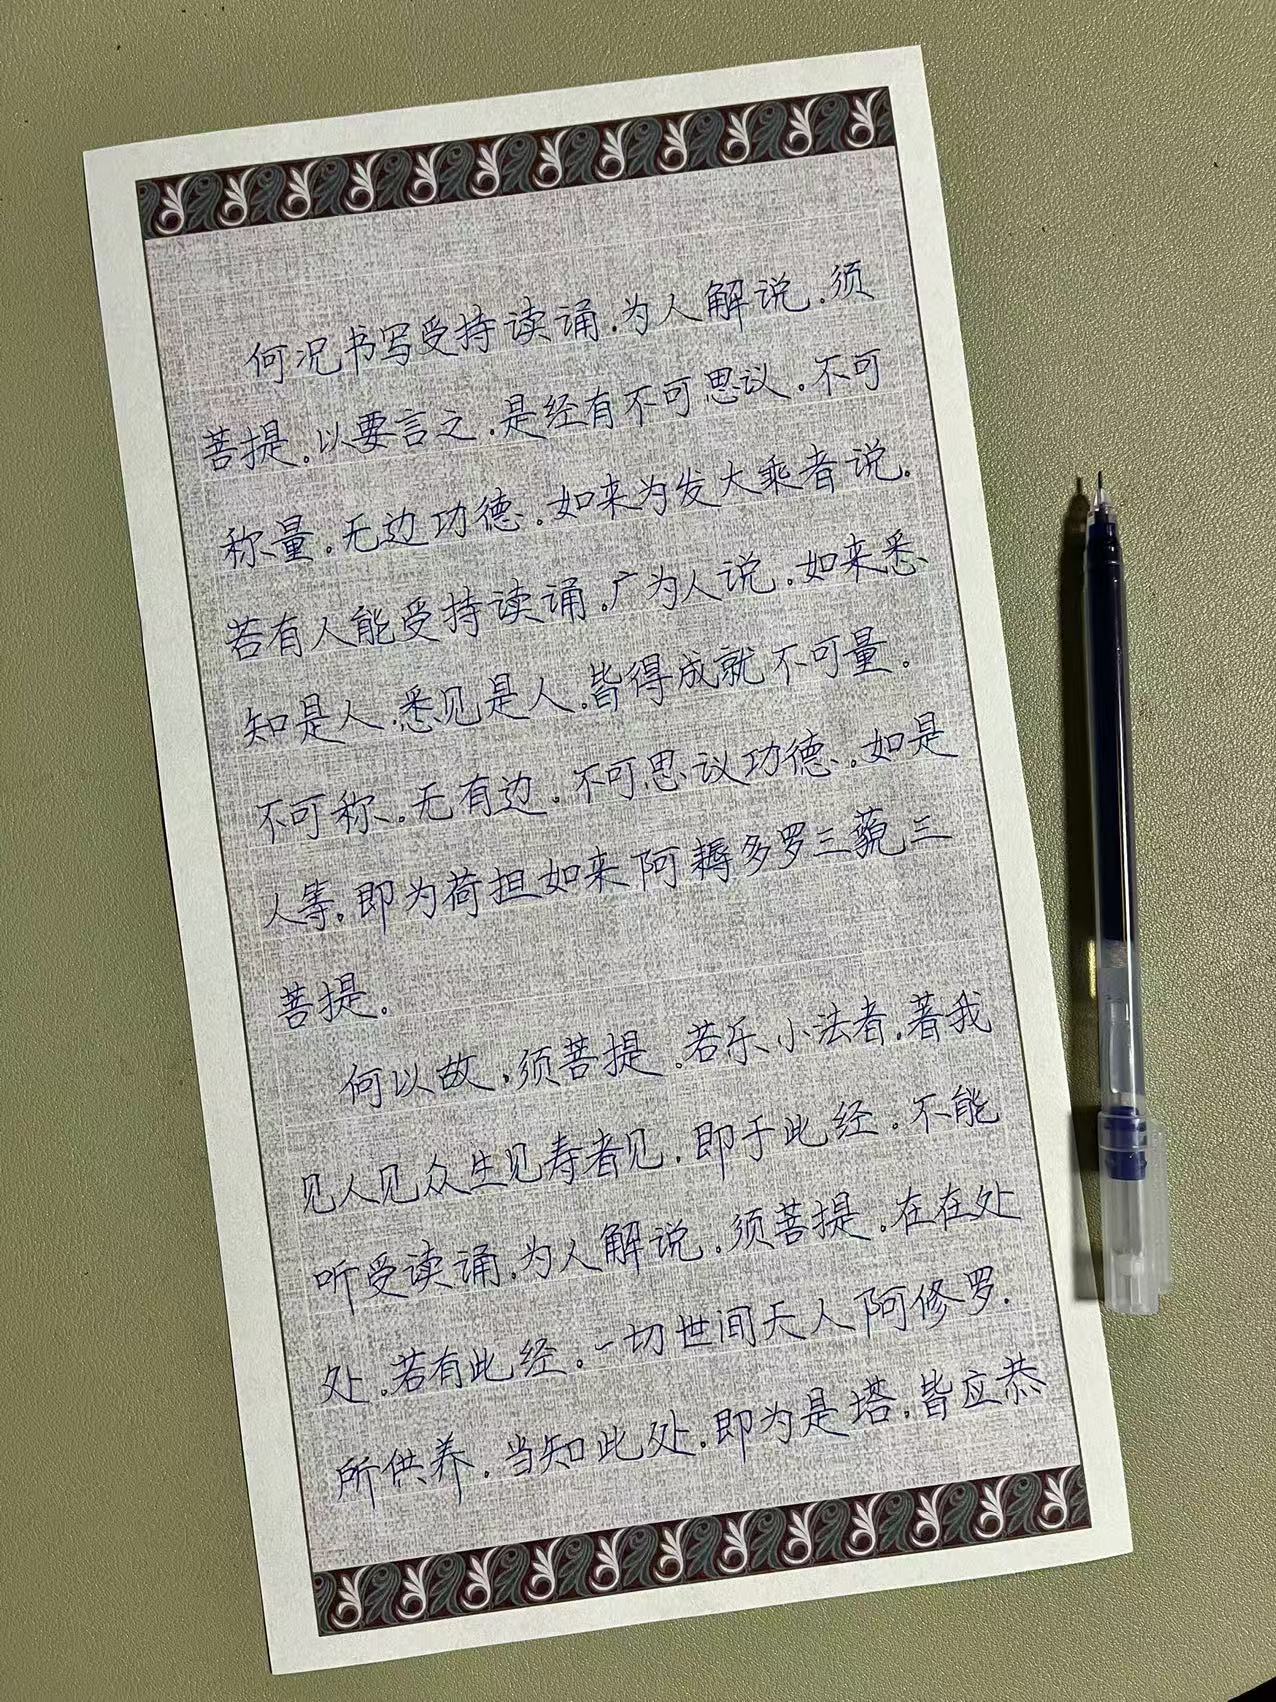 何况书写受持读诵.为人解说.须
菩提。以要言之.是经有不可思议。不可
称量.无边功德.如来为发大乘者说.
若有人能受持读诵.广为人说.如来悉
知是人.悉见是人.皆得成就不可量。
不可称.无有边.不可思议功德.如是
人等.即为荷担如来阿耨多罗三藐三
菩提.
何以故.须菩提.若乐小法者.著我
见人见众生见寿者见.即于此经.不能
听受读诵.为人解说.须菩提.在在处
处.若有此经.一切世间天人阿修罗.
所供养.当知此处.即为是塔.皆应恭